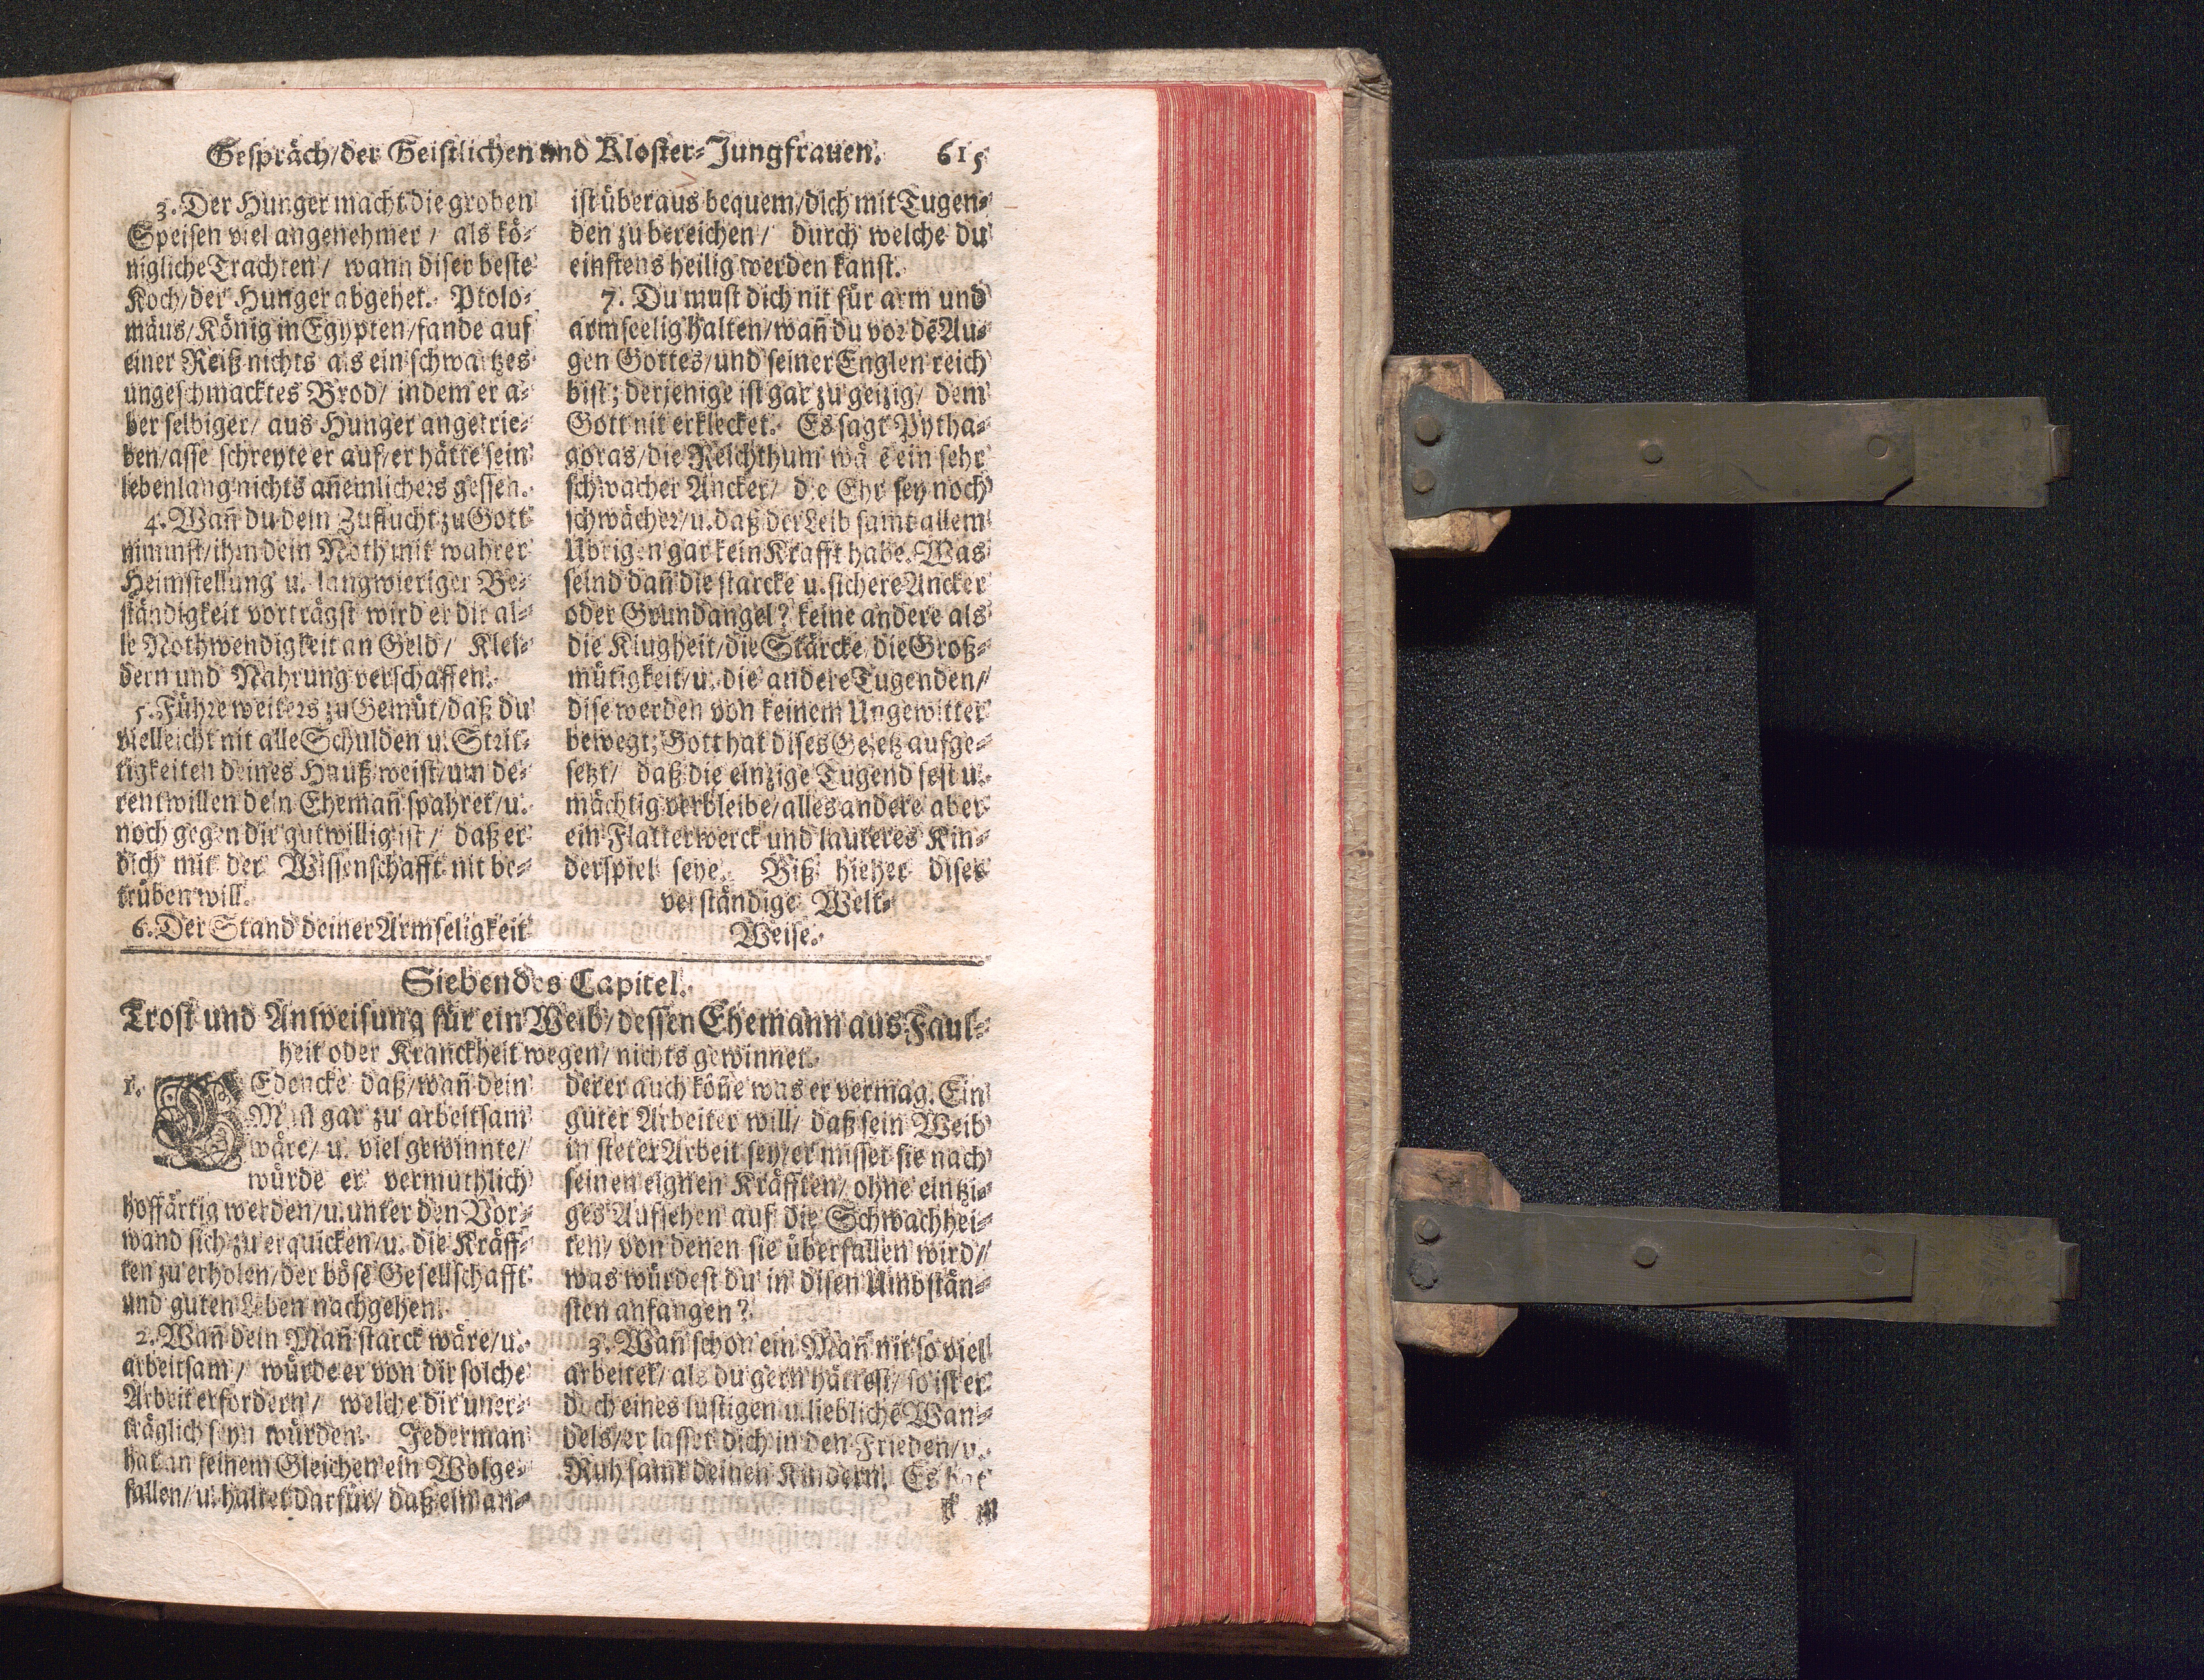 Gespräch/der Geistlichen und Kloster-Jungfrauen. 615
3. Der Hunger macht die groben
Speisen viel angenehmer / als kö-
nigliche Trachten / wann diser beste
Koch/der Hunger abgehet. Ptolo-
mäus/König in Egypten/fande auf
einer Reiß nichts als ein schwartzes
ungeschmacktes Brod/ indem er a-
ber selbiger/ aus Hunger angetrie-
ben/asse schreyte er auf/er hätte sein
lebenlang nichts añemlichers gessen.
4. Wañ du dein Zuflucht zu Gott
nimmst/ihm dein Noth mit wahrer
Heimstellung u. langwieriger Be-
ständigkeit vorträgst wird er dir al-
le Nothwendigkeit an Geld/ Klei-
dern und Nahrung verschaffen.
5. Führe weiters zu Gemüt/daß du
vielleicht nit alle Schulden u. Strit-
tigkeiten deines Hauß weist/um de-
rentwillen dein Ehemañ spahret/u.
noch gegen dir gutwillig ist / daß er
dich mit der Wissenschafft nit be-
trüben will.
6. Der Stand deiner Armseligkeit
ist überaus bequem/dich mit Tugen-
den zu bereichen / durch welche du
einstens heilig werden kanst.
7. Du must dich nit für arm und
armseelig halten/wañ du vor dẽ Au-
gen Gottes/und seiner Englen reich
bist; derjenige ist gar zu geizig/ dem
Gott nit erklecket. Es sagt Pytha-
goras/die Reichthum wäẽ ein sehr
schwacher Ancker/ die Ehr sey noch
schwächer/u. daß der Leib samt allem
Übrigen gar kein Krafft habe. Was
seind dañ die starcke u. sichere Ancker
oder Grundangel? keine andere als
die Klugheit/die Stärcke/die Groß-
mütigkeit/u. die andere Tugenden/
dise werden von keinem Ungewitter
bewegt; Gott hat dises Gesetz aufge-
setzt/ daß die einzige Tugend fest u.
mächtig verbleibe/alles andere aber
ein Flatterwerck und lauteres Kin-
derspiel seye. Biß hieher diser
verständige Welt-
Weise.
Siebendes Capitel.
Trost und Anweisung für ein Weib/dessen Ehemann aus Faul-
heit oder Kranckheit wegen/ nichts gewinnet.
1. GEdencke daß/wañ dein
Mañ gar zu arbeitsam
wäre/ u. viel gewinnte/
würde er vermuthlich
hoffärtig werden/u. unter den Vor-
wand sich zu erquicken/u. die Kräff-
ten zu erholen/der böse Gesellschafft
und guten Leben nachgehen.
2. Wañ dein Mañ starck wäre/u.
arbeitsam / würde er von dir solche
Arbeit erfordern / welche dir uner-
träglich seyn würden. Jederman
hat an seinem Gleichen ein Wolge-
fallen/ u. haltet darfür/ daß ein an-
derer auch köñe was er vermag. Ein
guter Arbeiter will/ daß sein Weib
in steter Arbeit sey/er misset sie nach
seinen eignen Kräfften/ ohne eintzi-
ges Aufsehen auf die Schwachhei-
ten/ von denen sie überfallen wird/
was würdest du in disen Umbstän-
sten anfangen?
3. Wañ schon ein Mañ nit so viel
arbeitet/ als du gern hättest/ so ist er
doch eines lustigen u. lieblichẽ Wan-
dels/er lasset dich in den Frieden/u.
Ruh samt deinen Kindern. Es hat